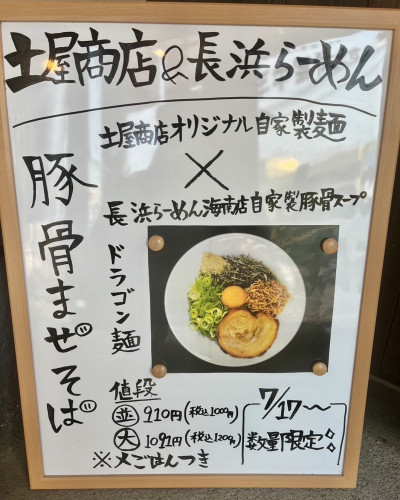 土屋商店&長浜らーめん
土屋商店オリジナル自家製麺
×
長浜らーめん海南店自家製豚骨スープ
豚骨まぜそば
ドラゴン麺
値段
並 910円(税込1000円)
大 1091円(税込1200円)
※〆ごはんつき
7/17〜
数量限定